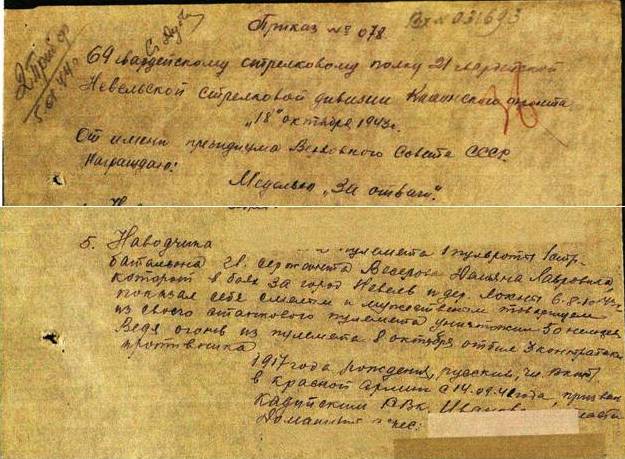 Приказ № 078
Вх № 031693
64 гвардейскому стрелковому полку 21 гвардейской
Невельской стрелковой дивизии Калининского фронта
"18" октября 1943г.
От имени президиума Верховного Совета СССР
Награждаю:
Медалью "За отвагу".
5. Наводчика пулемета 1 пульроты 1 стр.
батальона гв. сержанта Лавровича,
который в боях за город Невель и дер. 6-8.10.43г
показал себя смелым и мужественным товарищем
из своего станкового пулемета уничтожил 50 немцев
Ведя огонь из пулемета 8 октября отбил 3 контратаки
противника
1917 года рождения, русский, чл. ВКП(б)
в Красной Армии с 14.09.41 года, призван
Кадыйским РВК,
Домашний